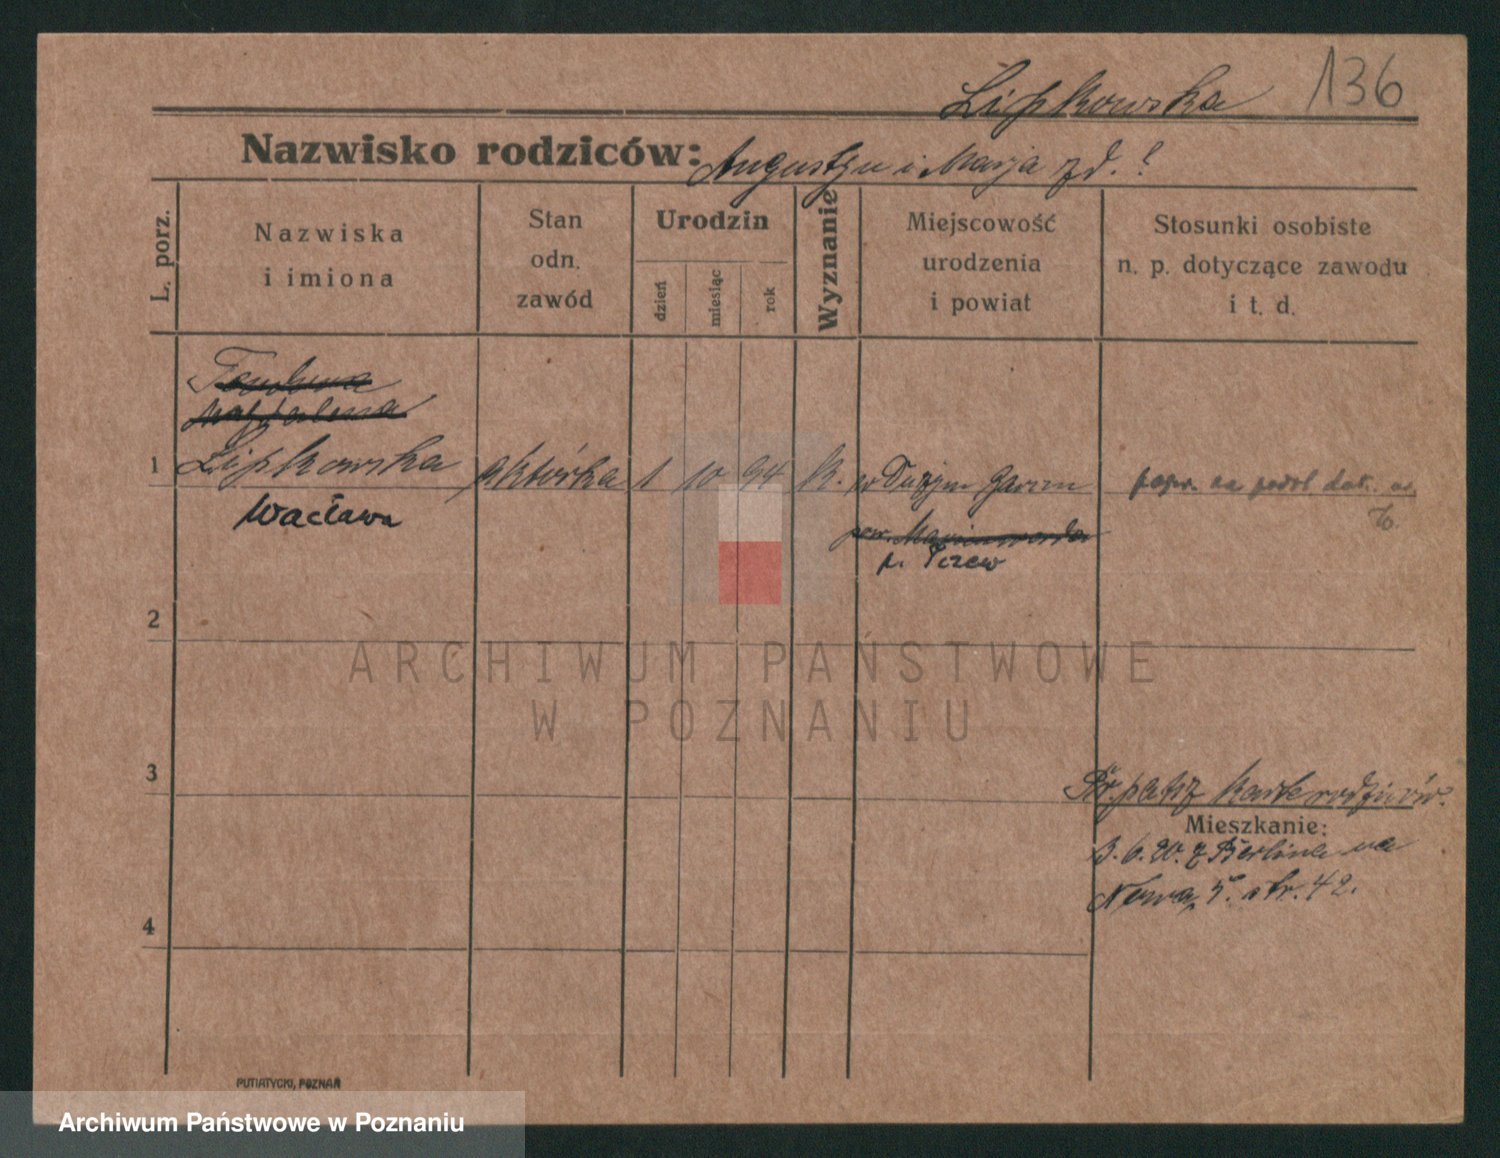 Lipkowska 136
Nazwisko rodziców: Augustyn i Marja zd. ?
L. porz.
Nazwiska
i imiona
Stan
odn.
zawód
Urodzin
dzień
miesiąc
rok
Wyznanie
Miejscowość
urodzenia
i powiat
Stosunki osobiste
n. p. dotyczące zawodu
i t. d.
1 Lipkowska aktórka 1 10 94 k. w Dużym Garcu
Wacława
p. Tczew
2
ARCHIWUM PAŃSTWOWE
W POZNANIU
3
patrz kartę rodziców.
Mieszkanie:
3.6.20. z Berlina na
Nowa 5. str. 42.
4
PUTIATYCKI, POZNAŃ
Archiwum Państwowe w Poznaniu